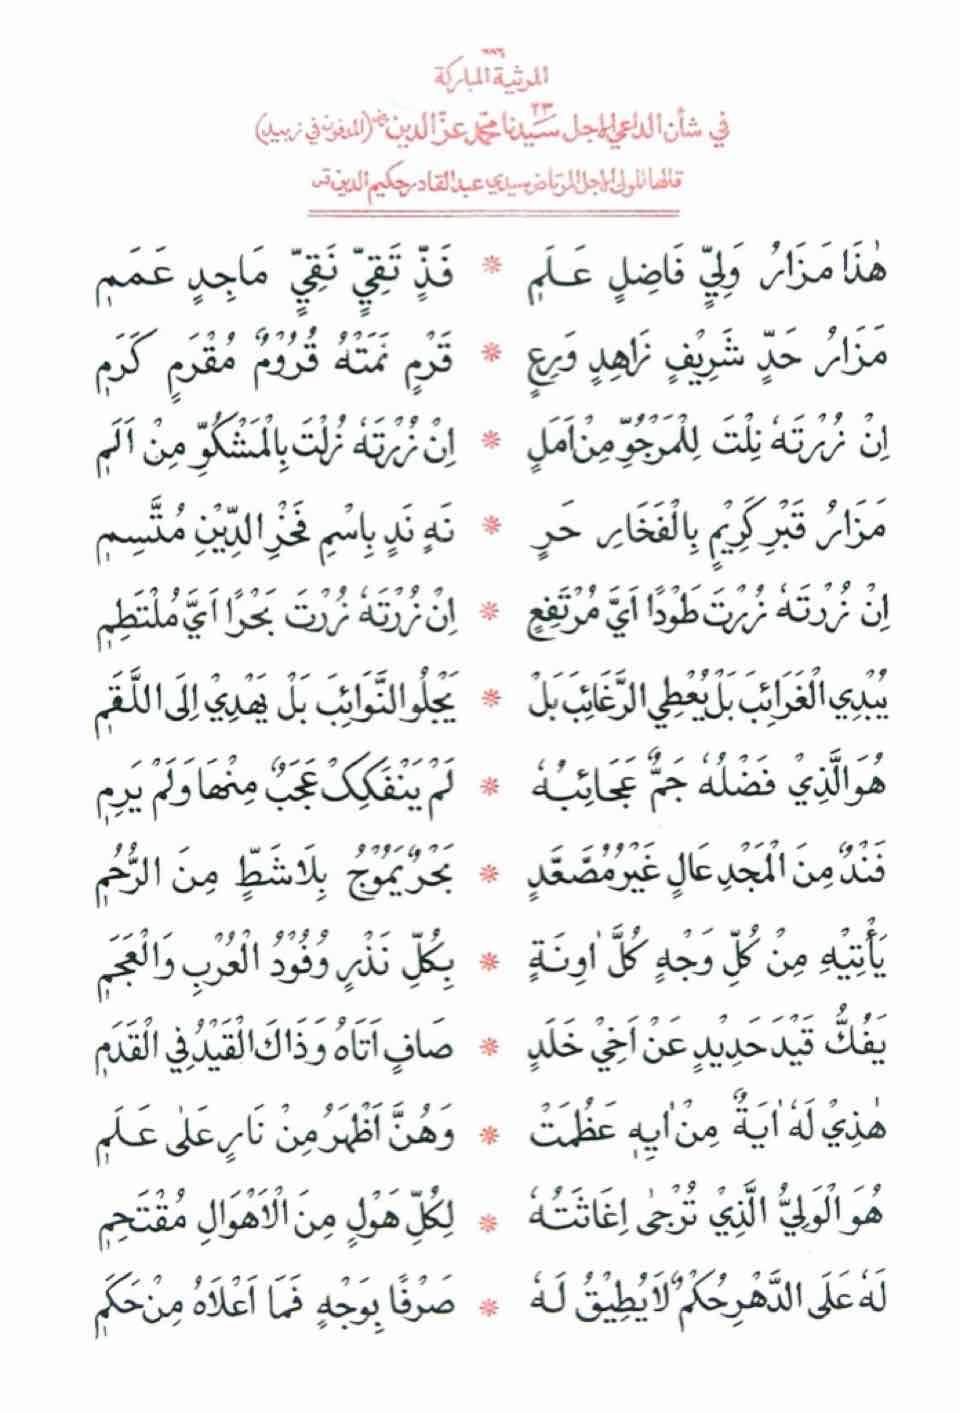 ٧٨٦
المرثية المباركة
في شأن الداعي الاجل ٢٣ سيدنا محمد عز الدين رض (المدفون في زبيد)
قالها المولى الاجل المرتاض سيدي عبد القادر حكيم الدين قس
هٰذَا مَزَارُ وَلِيٍّ فَاضِلٍ عَلَمٍ * فَذٍّ تَقِيٍّ نَقِيٍّ مَاجِدٍ عَمَمٍ
مَزَارُ حَدٍّ شَرِيْفٍ زَاهِدٍ وَرِعٍ * قَرْمٍ نَمَتْهُ قُرُوْمٌ مُقْرَمٍ كَرَمٍ
اِنْ زُرْتَهٗ نِلْتَ لِلْمَرْجُوِّ مِنْ اَمَلٍ * اِنْ زُرْتَهٗ زُلْتَ بِالْمَشْكُوِّ مِنْ اَلَمٍ
مَزَارُ قَبْرِ كَرِيْمٍ بِالْفَخَارِ حَرٍ * نَهٍ نَدٍ بِاسْمِ فَخْرِ الدِّيْنِ مُتَّسِمٍ
اِنْ زُرْتَهٗ زُرْتَ طَوْدًا اَيَّ مُرْتَفِعٍ * اِنْ زُرْتَهٗ زُرْتَ بَحْرًا اَيَّ مُلْتَطِمٍ
يُبْدِي الْغَرَائِبَ بَلْ يُعْطِي الرَّغَائِبَ بَلْ * يَجْلُو النَّوَائِبَ بَلْ يَهْدِيْ اِلَى اللَّقَمِ
هُوَ الَّذِيْ فَضْلُهٗ جَمٌّ عَجَائِبُهٗ * لَمْ يَنْفَكِكْ عَجَبٌ مِنْهَا وَلَمْ يَرِمِ
فَنْدٌ مِنَ الْمَجْدِ عَالٍ غَيْرُ مُصَّعَّدٍ * بَحْرٌ يَمُوْجُ بِلَا شَطٍّ مِنَ الرُّحُمِ
يَأْتِيْهِ مِنْ كُلِّ وَجْهٍ كُلَّ اٰوِنَةٍ * بِكُلِّ نَذْرٍ وُفُوْدُ الْعُرْبِ وَالْعَجَمِ
يَفُكُّ قَيْدَ حَدِيْدٍ عَنْ اَخِيْ خَلَدٍ * صَافٍ اَتَاهُ وَذَاكَ الْقَيْدُ فِي الْقَدَمِ
هٰذِيْ لَهٗ اٰيَةٌ مِنْ اٰيِهٖ عَظُمَتْ * وَهُنَّ اَظْهَرُ مِنْ نَارٍ عَلٰى عَلَمٍ
هُوَ الْوَلِيُّ الَّذِيْ تُرْجٰى اِغَاثَتُهٗ * لِكُلِّ هَوْلٍ مِنَ الْاَهْوَالِ مُقْتَحِمٍ
لَهٗ عَلَى الدَّهْرِ حُكْمٌ لَا يُطِيْقُ لَهٗ * صَرْفًا بِوَجْهٍ فَمَا اَعْلَاهُ مِنْ حَكَمٍ